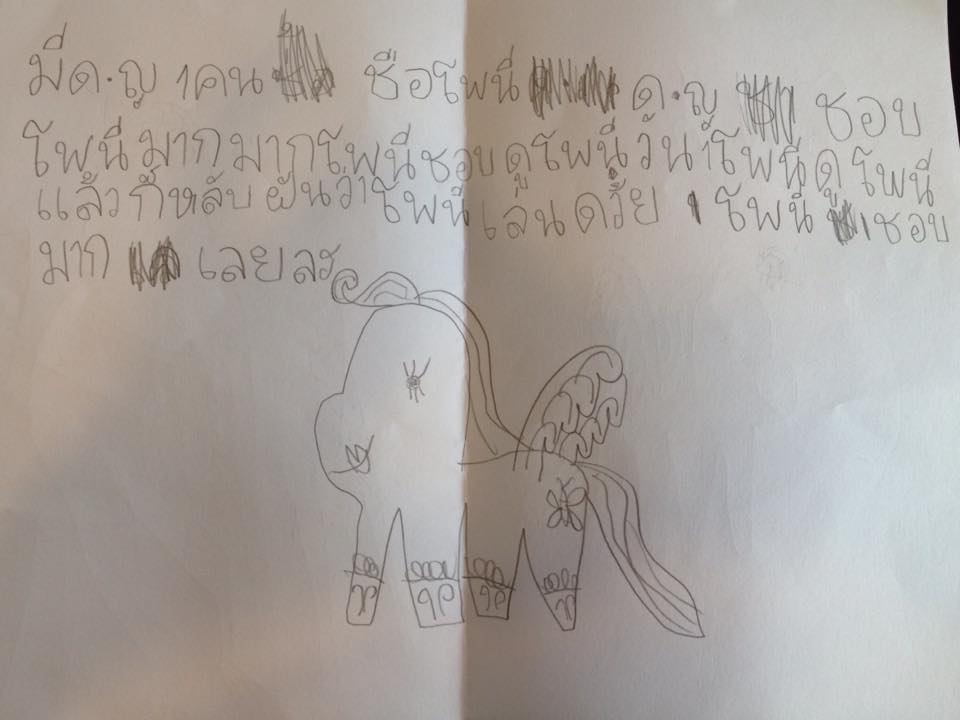 มี่ด.ญ 1คน ชือโพนี่ ด.ญ ชอบ
โพนี่มากมากโพนี่ชอบดูโพนี่วันนี้โพนี่ดูโพนี่
แล้วก็หลับฝันว่าโพนี่เล่นด้วย โพนี่ชอบ
มาก เลยละ